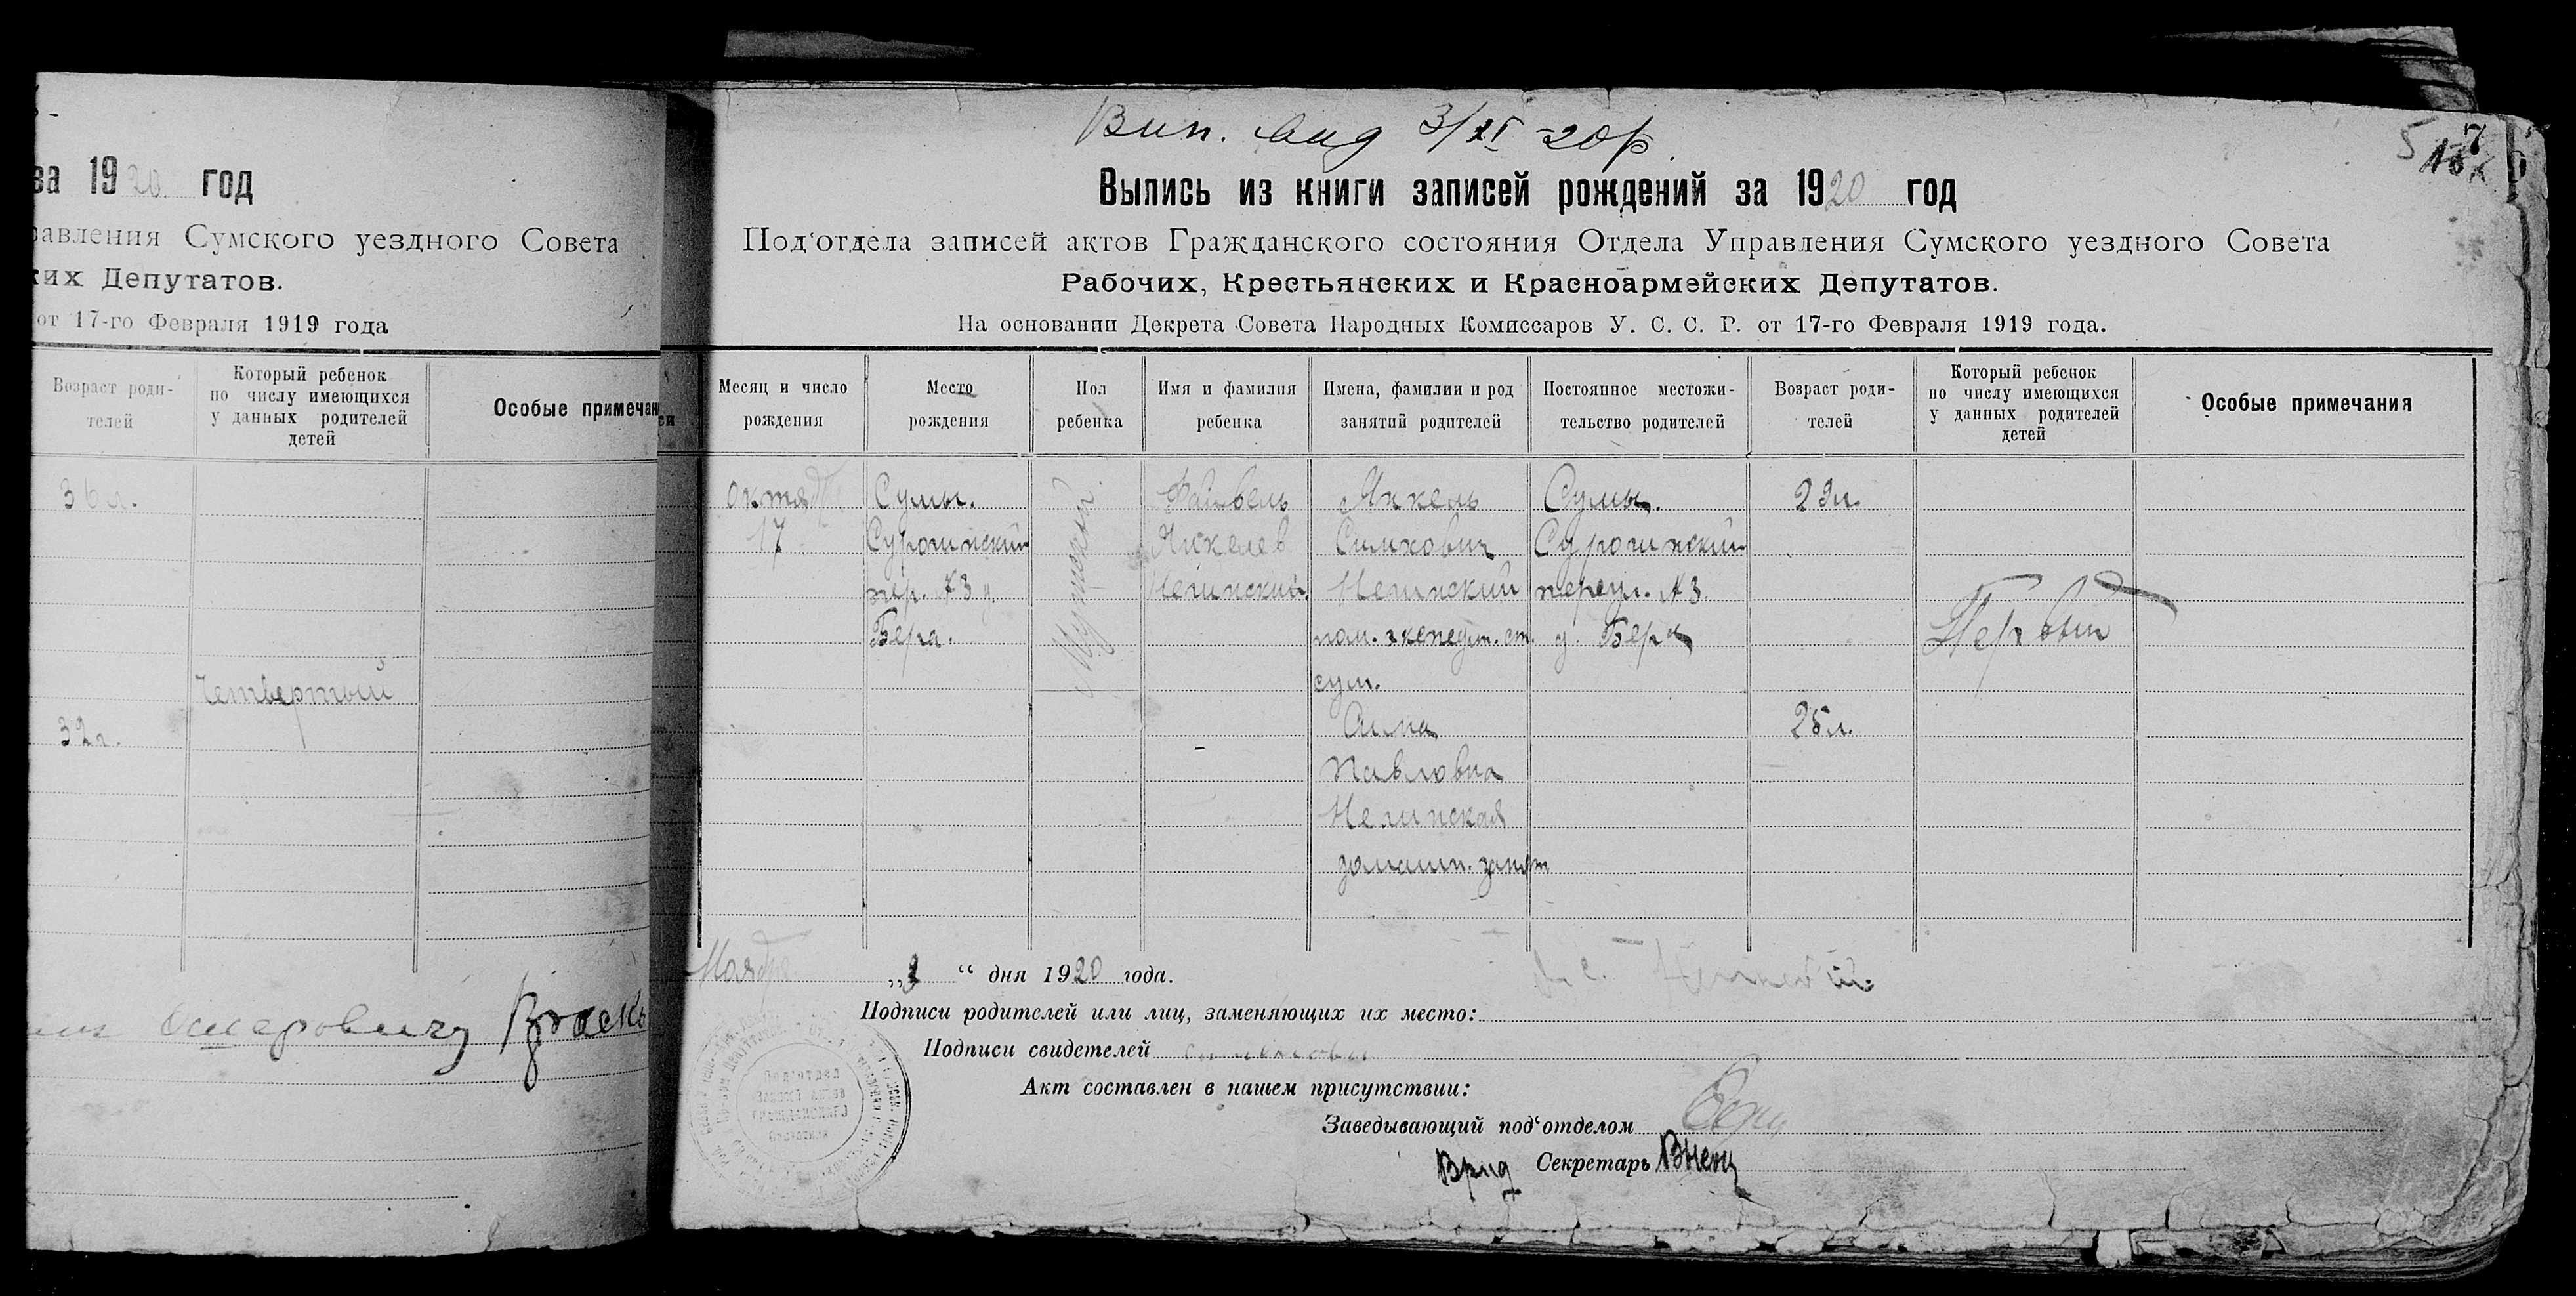 за 1920 год
равления Сумского уездного Совета
ких Депутатов.
от 17-го Февраля 1919 года
Возраст роди-
телей
Который ребенок
по числу имеющихся
у данных родителей
детей
Особые примечан
36 л.
Четвертый
32 г.
Ошеровичу
Вип. вид 3/XI -20 р.
5
7
Выпись из книги записей рождений за 1920 год
Под‘отдела записей актов Гражданского состояния Отдела Управления Сумского уездного Совета
Рабочих, Крестьянских и Красноармейских Депутатов.
На основании Декрета Совета Народных Комиссаров У. С. С. Р. от 17-го Февраля 1919 года.
Месяц и число
рождения
Место
рождения
Пол
ребенка
Имя и фамилия
ребенка
Имена, фамилии и род
занятий родителей
Постоянное местожи-
тельство родителей
Возраст роди-
телей
Который ребенок
по числу имеющихся
у данных родителей
детей
Особые примечания
октября
17
Сумы.
пер. №3 д.
Бера.
Мужской.
Файвель
Янкелев
Янкель
Симхович
сум.
Павловна
домашн. занят
Сумы.
переул. №3
д. Бера
29 л.
25 л.
Первый
Ноября „3“ дня 1920 года.
Подписи родителей или лиц, заменяющих их место:
Подписи свидетелей
Акт составлен в нашем присутствии:
Заведывающий под‘отделом
Врид Секретарь
Под‘отдел
Записи актов
Гражданского
Состояния